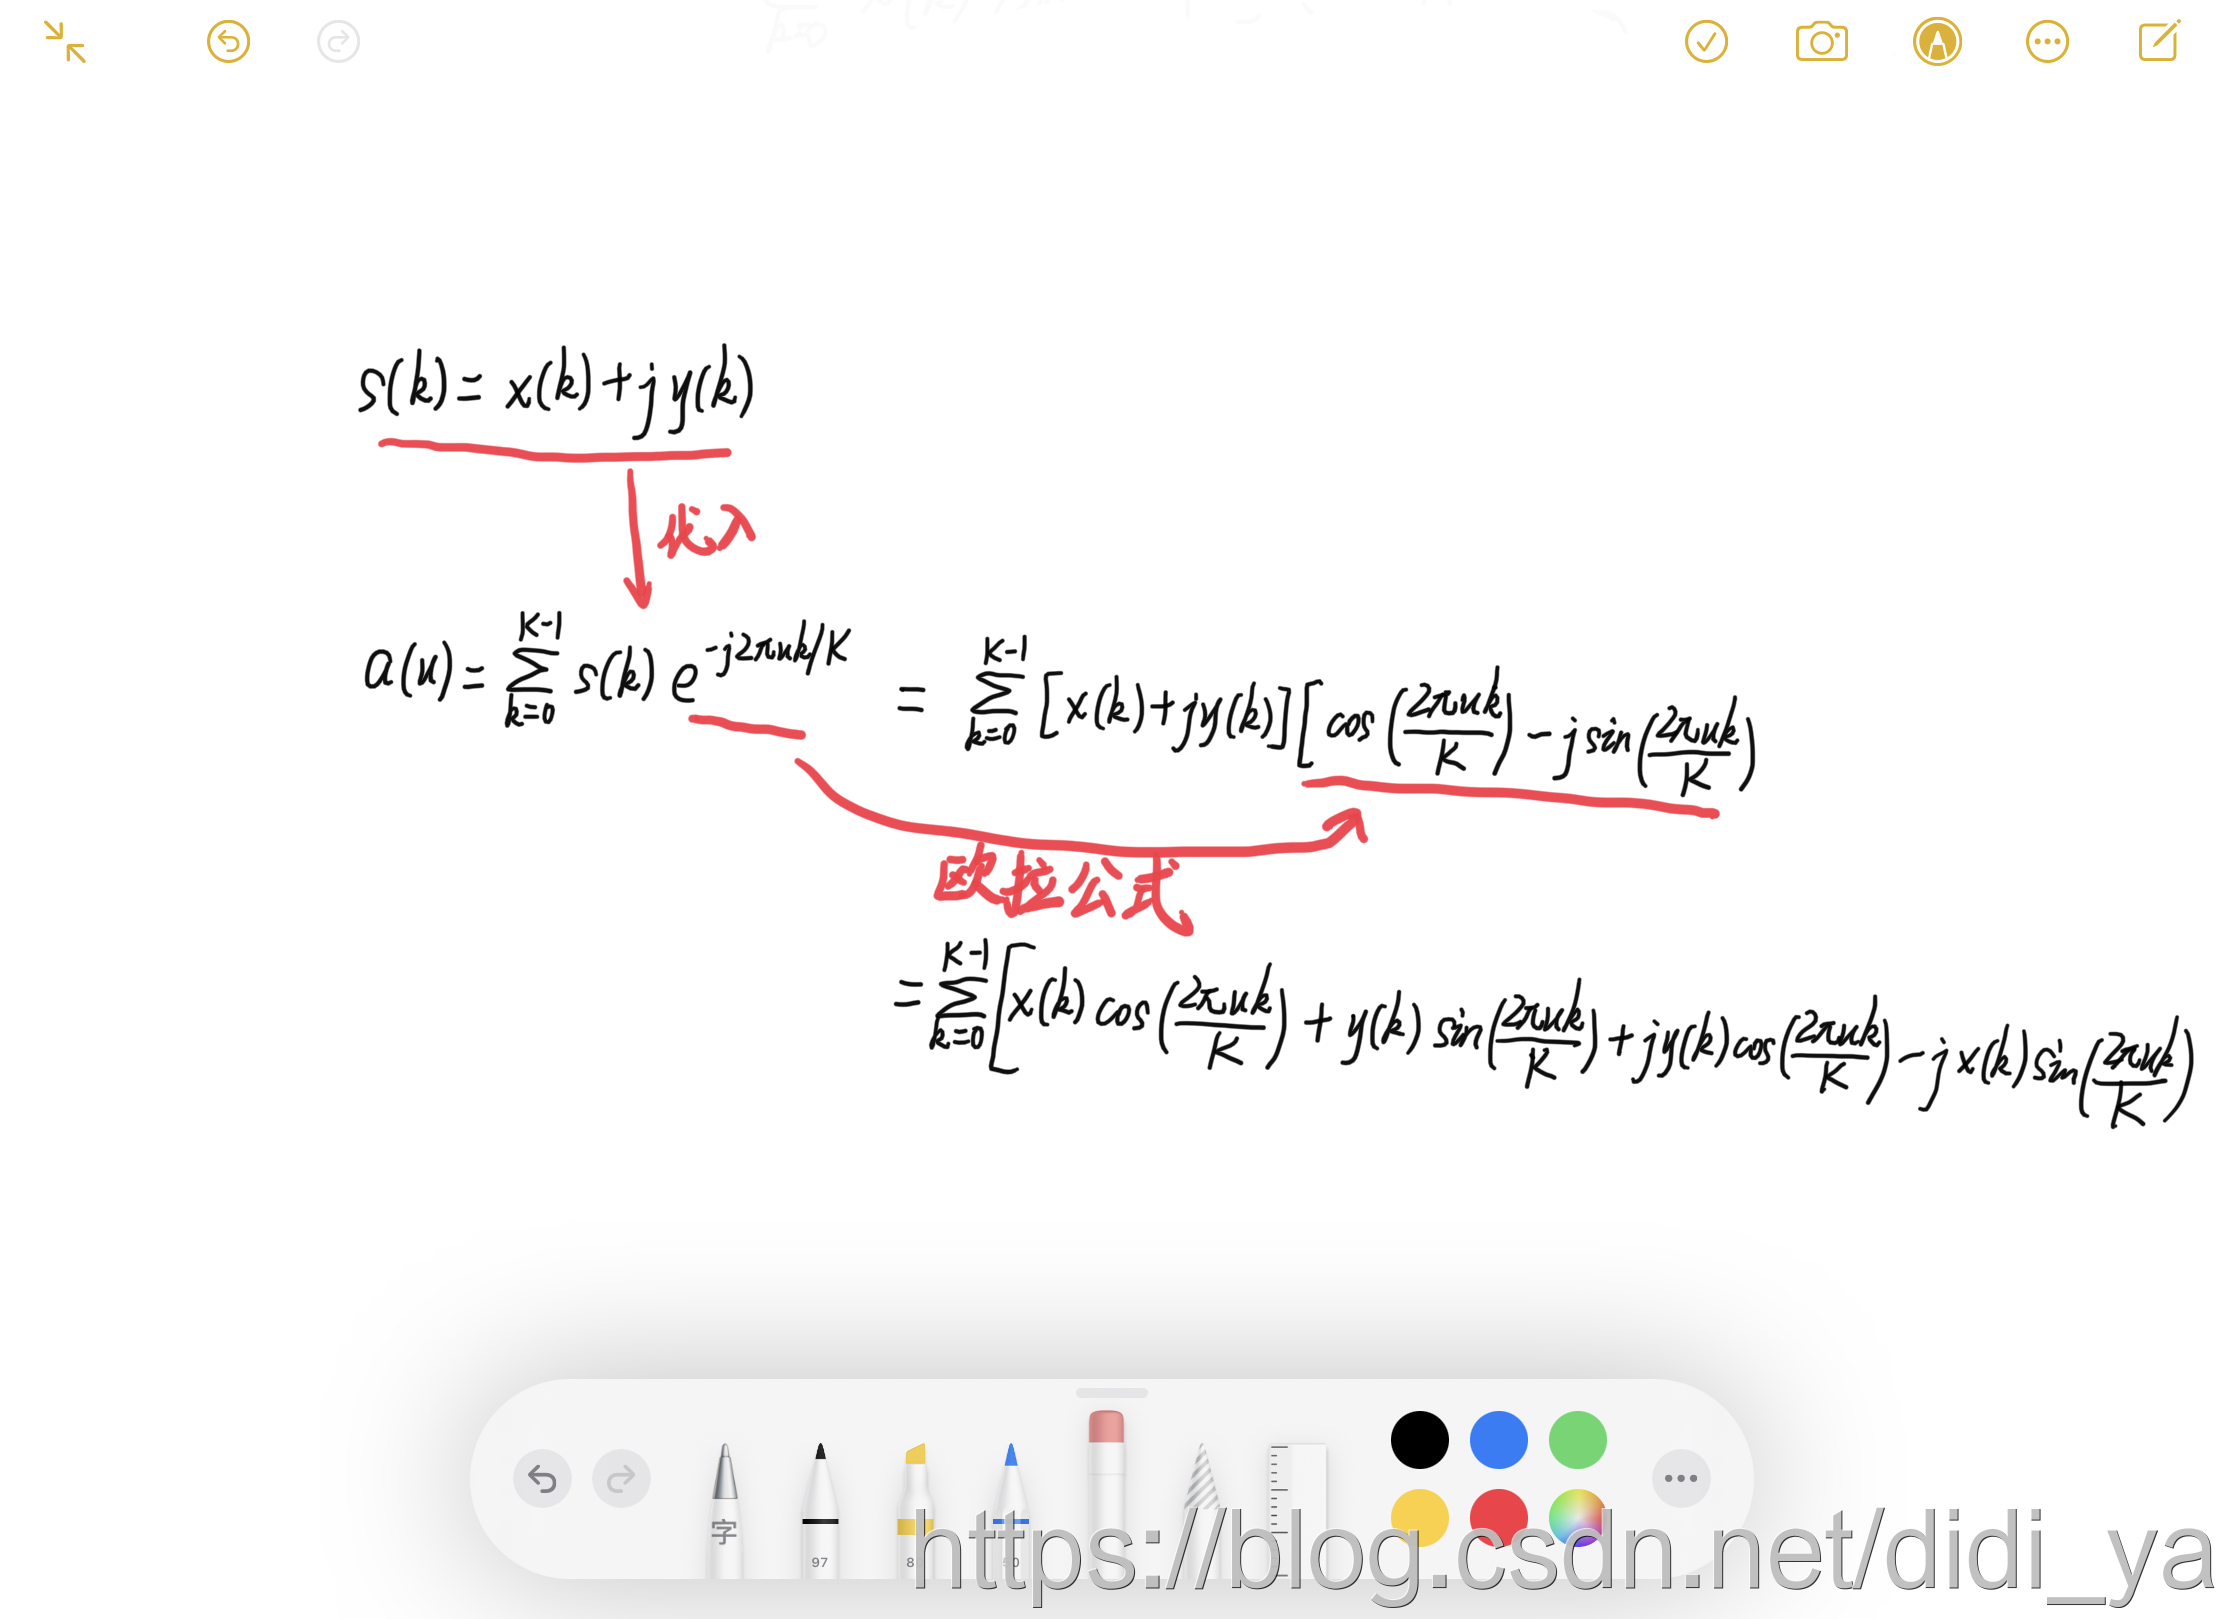 s(k) = x(k) + j y(k)
代入
a(u) = ∑_{k=0}^{K-1} s(k) e^{-j2πuk/K} = ∑_{k=0}^{K-1} [x(k) + jy(k)] [cos(2πuk/K) - j sin(2πuk/K)
欧拉公式
= ∑_{k=0}^{K-1} [x(k) cos(2πuk/K) + y(k) sin(2πuk/K) + jy(k) cos(2πuk/K) - j x(k) sin(2πuk/K)
字
97
8
https://blog.csdn.net/didi_ya